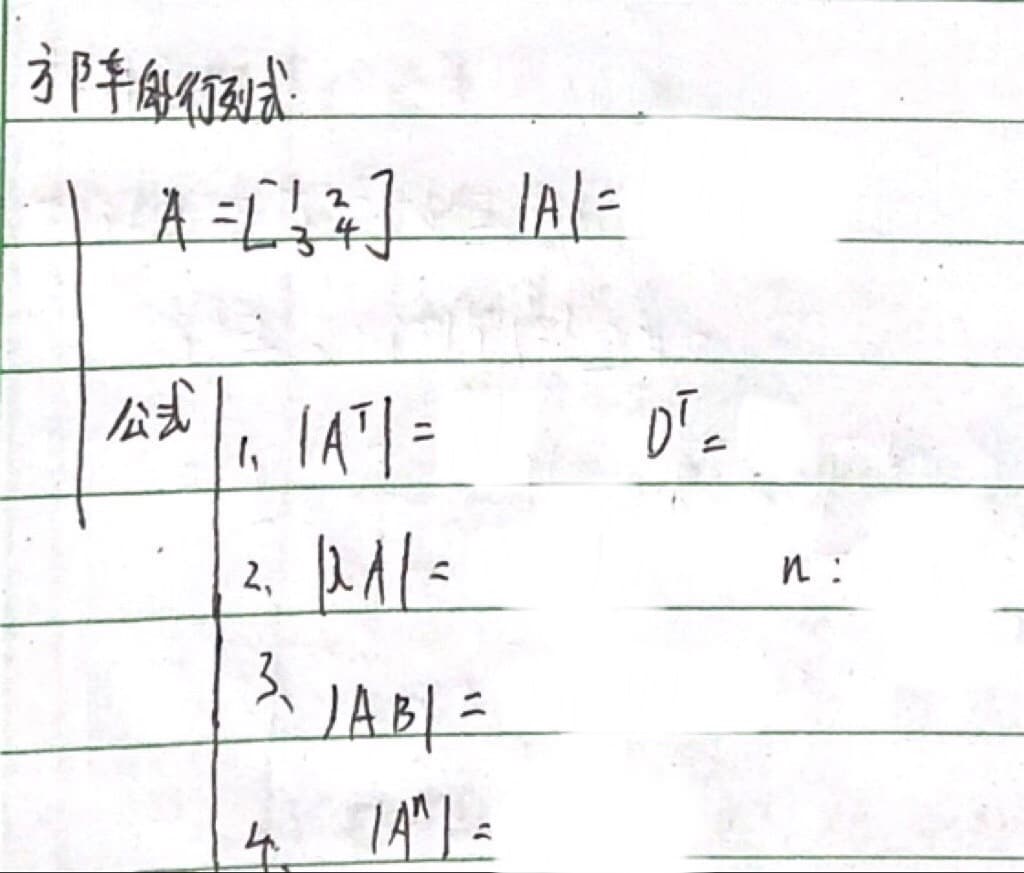 方阵的行列式
A = [1 2 3 4] |A| =
公式
1、|Aᵀ| = Dᵀ =
2、|λA| = n:
3、|AB| =
4、|Aⁿ| =